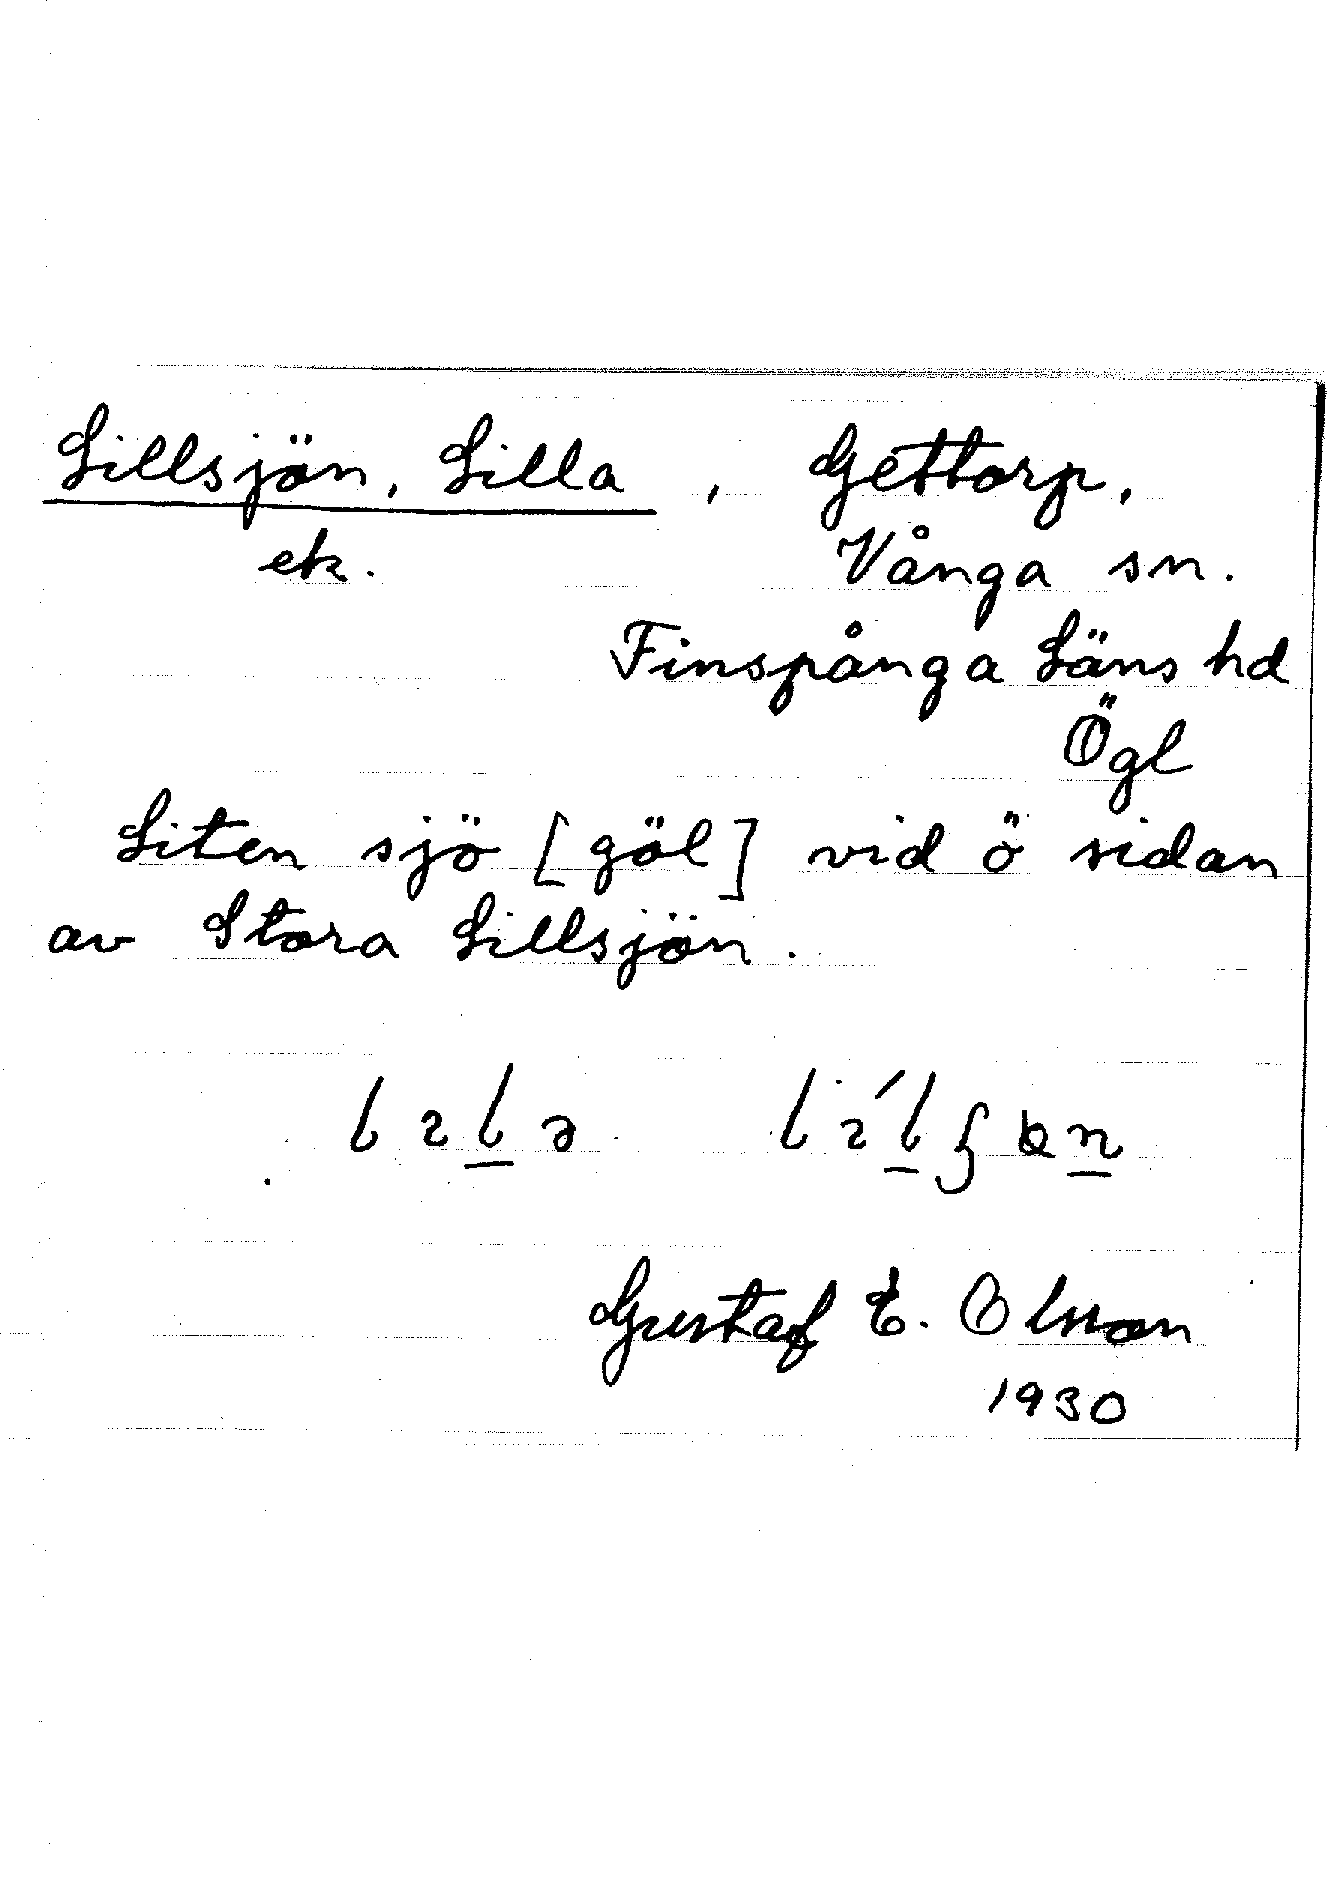 Lillsjön, Lilla, Gettorp,
ek. Vånga sn.
Finspånga Läns hd
Ögl
Liten sjö [göl] vid ö sidan
av Stora Lillsjön.
Gustaf E. Olsson
1930